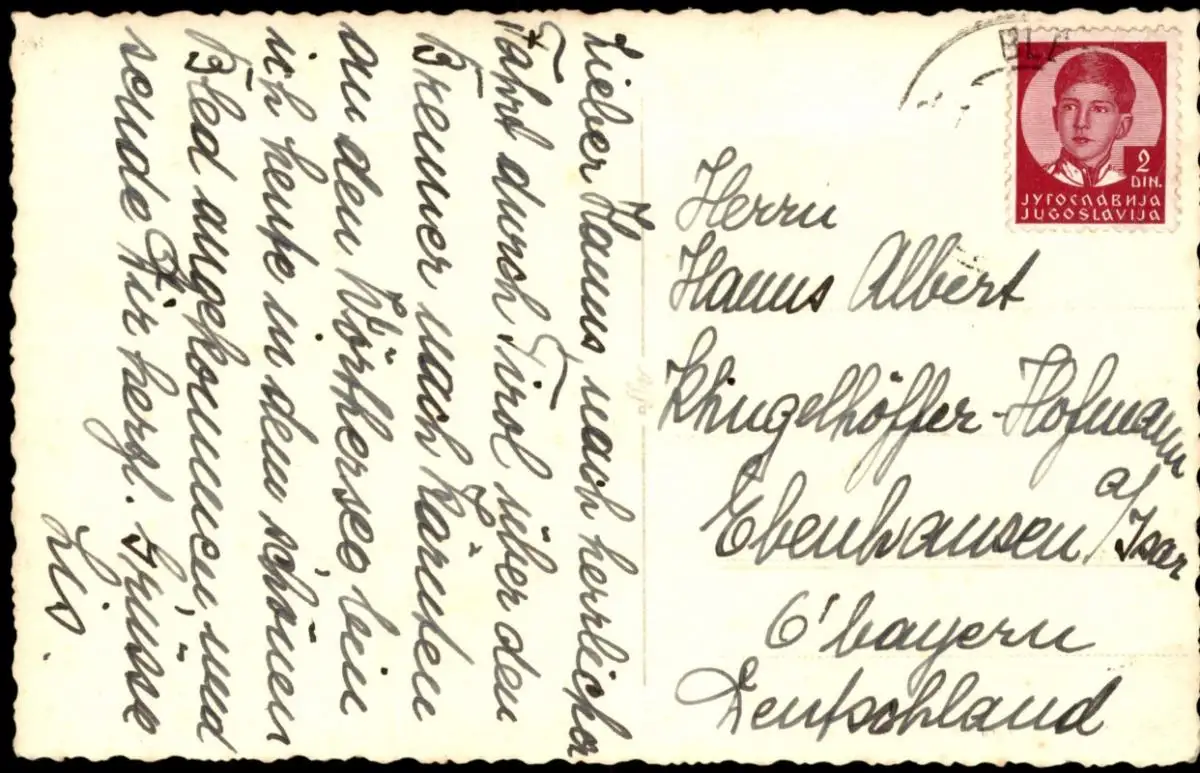 Lieber Hanns, nach herrlicher
Fahrt durch Tirol über den
Brenner nach Kärnten
an den Wörthersee bin
ich heute in dem schönen
Bled angekommen, und
sende Dir herzl. Grüsse
Lis.
2
DIN.
ЈУГОСЛАВИЈА
JUGOSLAVIJA
Herrn
Hanns Albert
Klingelhöffer-Hofmann
Ebenhausen a/Isar
O'bayern
Deutschland